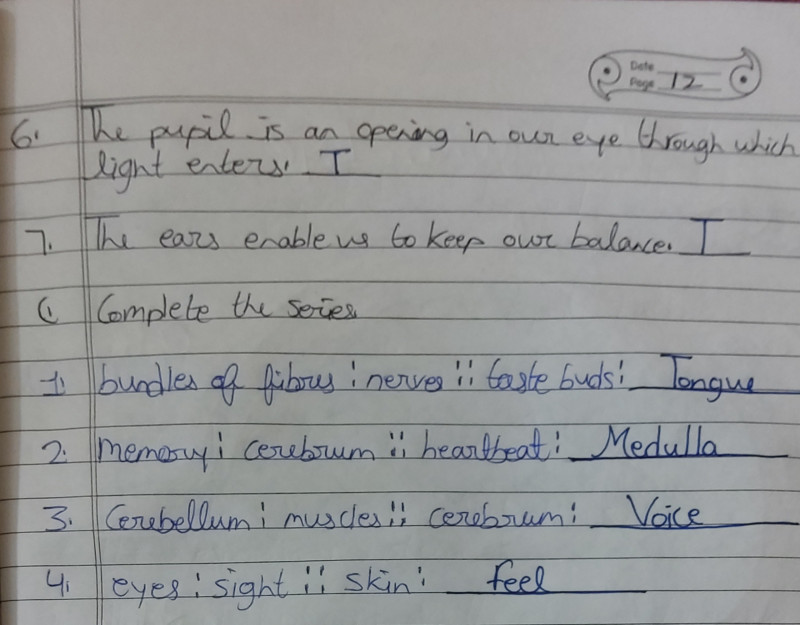 Date
Page 12
6. The pupil is an opening in our eye through which
light enters. T
7. The ears enable us to keep our balance. T
C. Complete the series
1. bundles of fibres : nerves :: taste buds : Tongue
2. memory : cerebrum :: heartbeat : Medulla
3. Cerebellum : muscles :: cerebrum : Voice
4. eyes : sight :: skin : feel